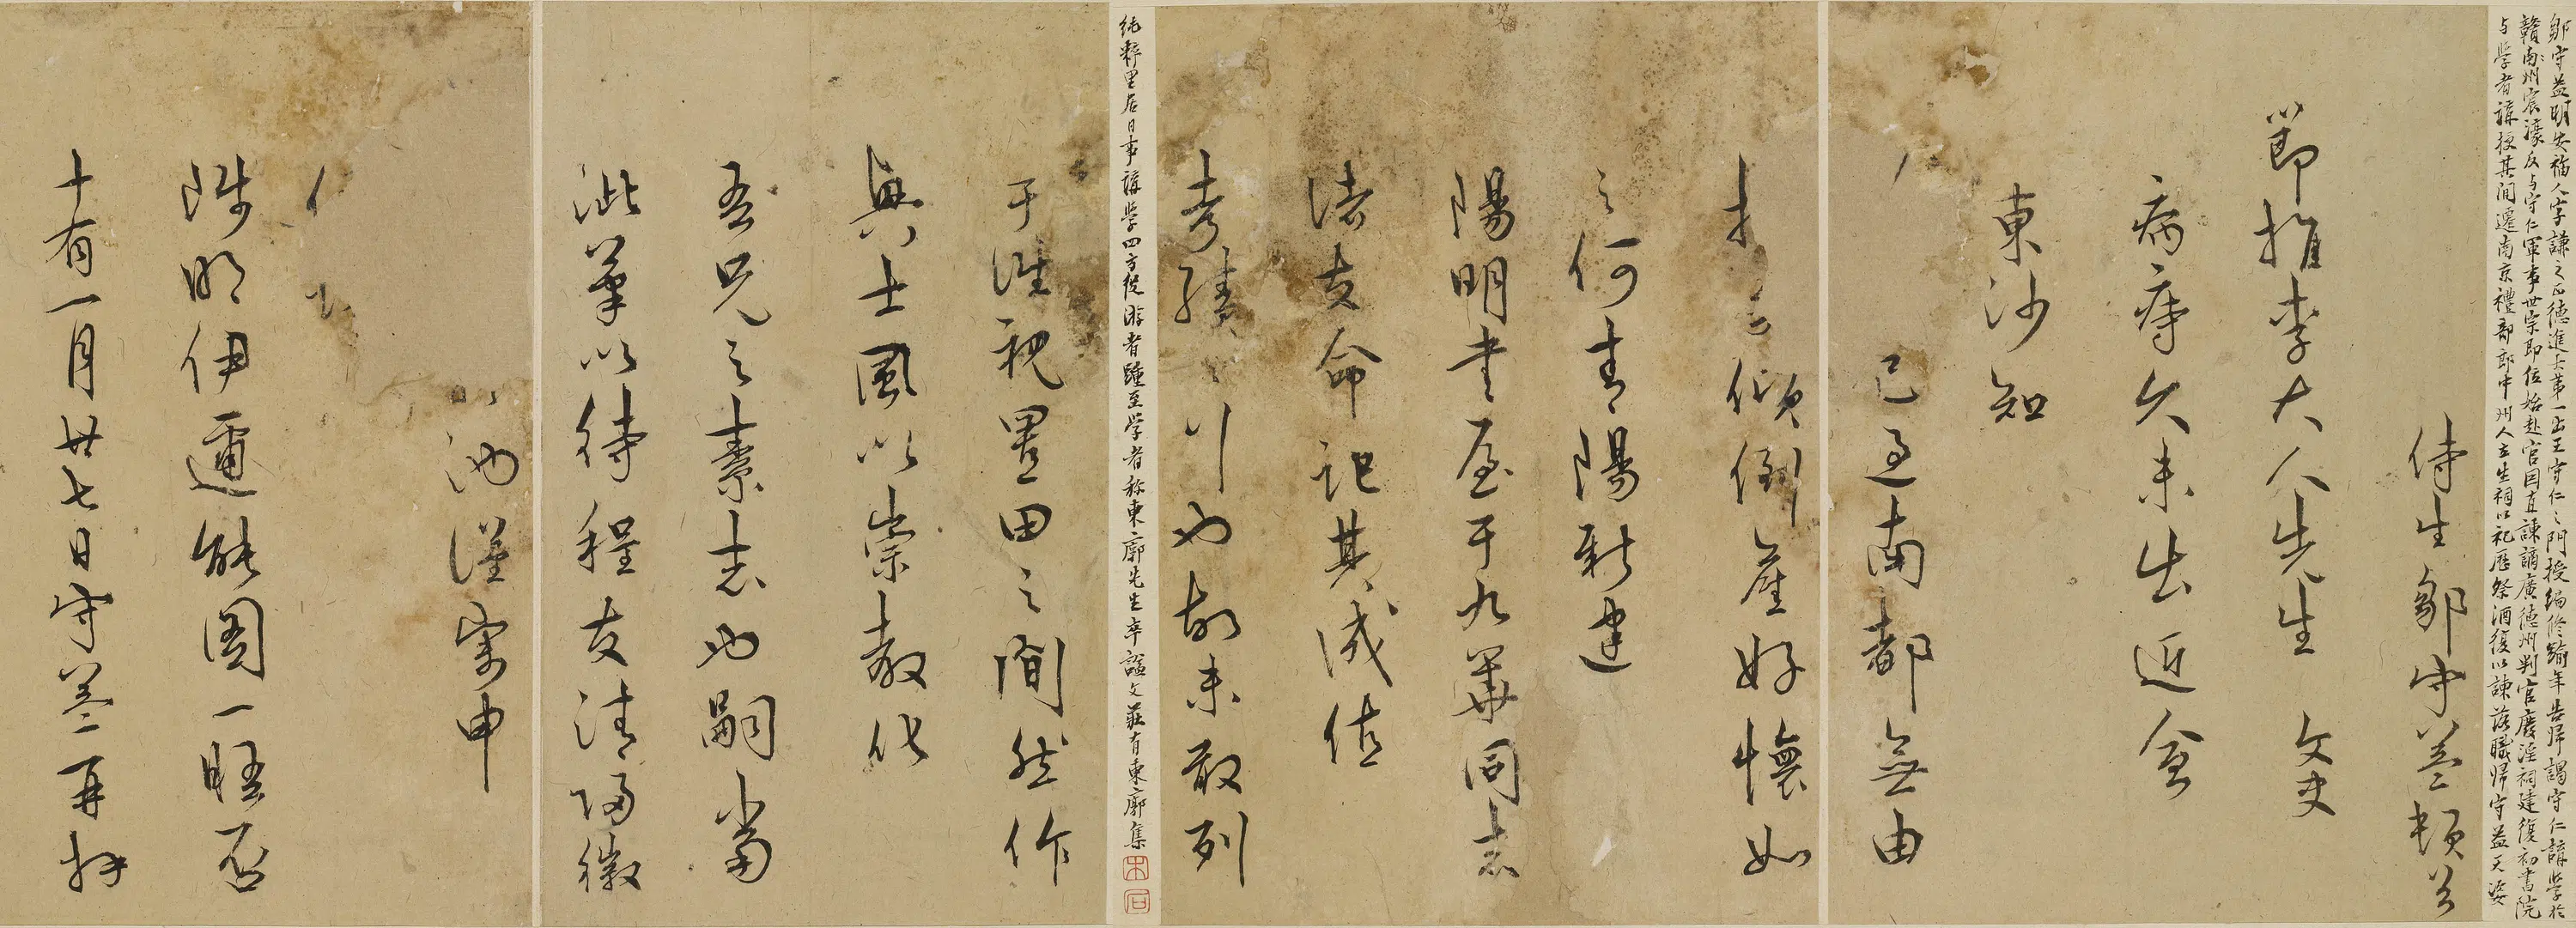 鄒守益明安福人字謙之正德進士第一出王守仁之門授編修踰年告歸謁守仁講學於
贛南州宸濠反与守仁軍事世宗即位始赴官因直諫謫廣德州判官廢淫祠建復初書院
与學者講授其間遷南京禮部郎中州人立生祠以祀歷祭酒復以諫落職歸守益天姿
侍生鄒守益頓首
節推李大人先生 文史
病痔久未出近會
東沙知
已過南都無由
傾倒崖好懷如
之何青陽新建
陽明書屋于九華同志
諸友命記其成值
考績之行也故未敢列
純粹里居日事講學四方從游者踵至學者称東廓先生卒謚文莊有東廓集
于淮視置田之間然作
興士風以崇教化
吾兄之素志也嗣當
泚筆以待程友清歸徽
池謹寀申
伊邇能圖一晤否
十有一月廿七日守益再拜